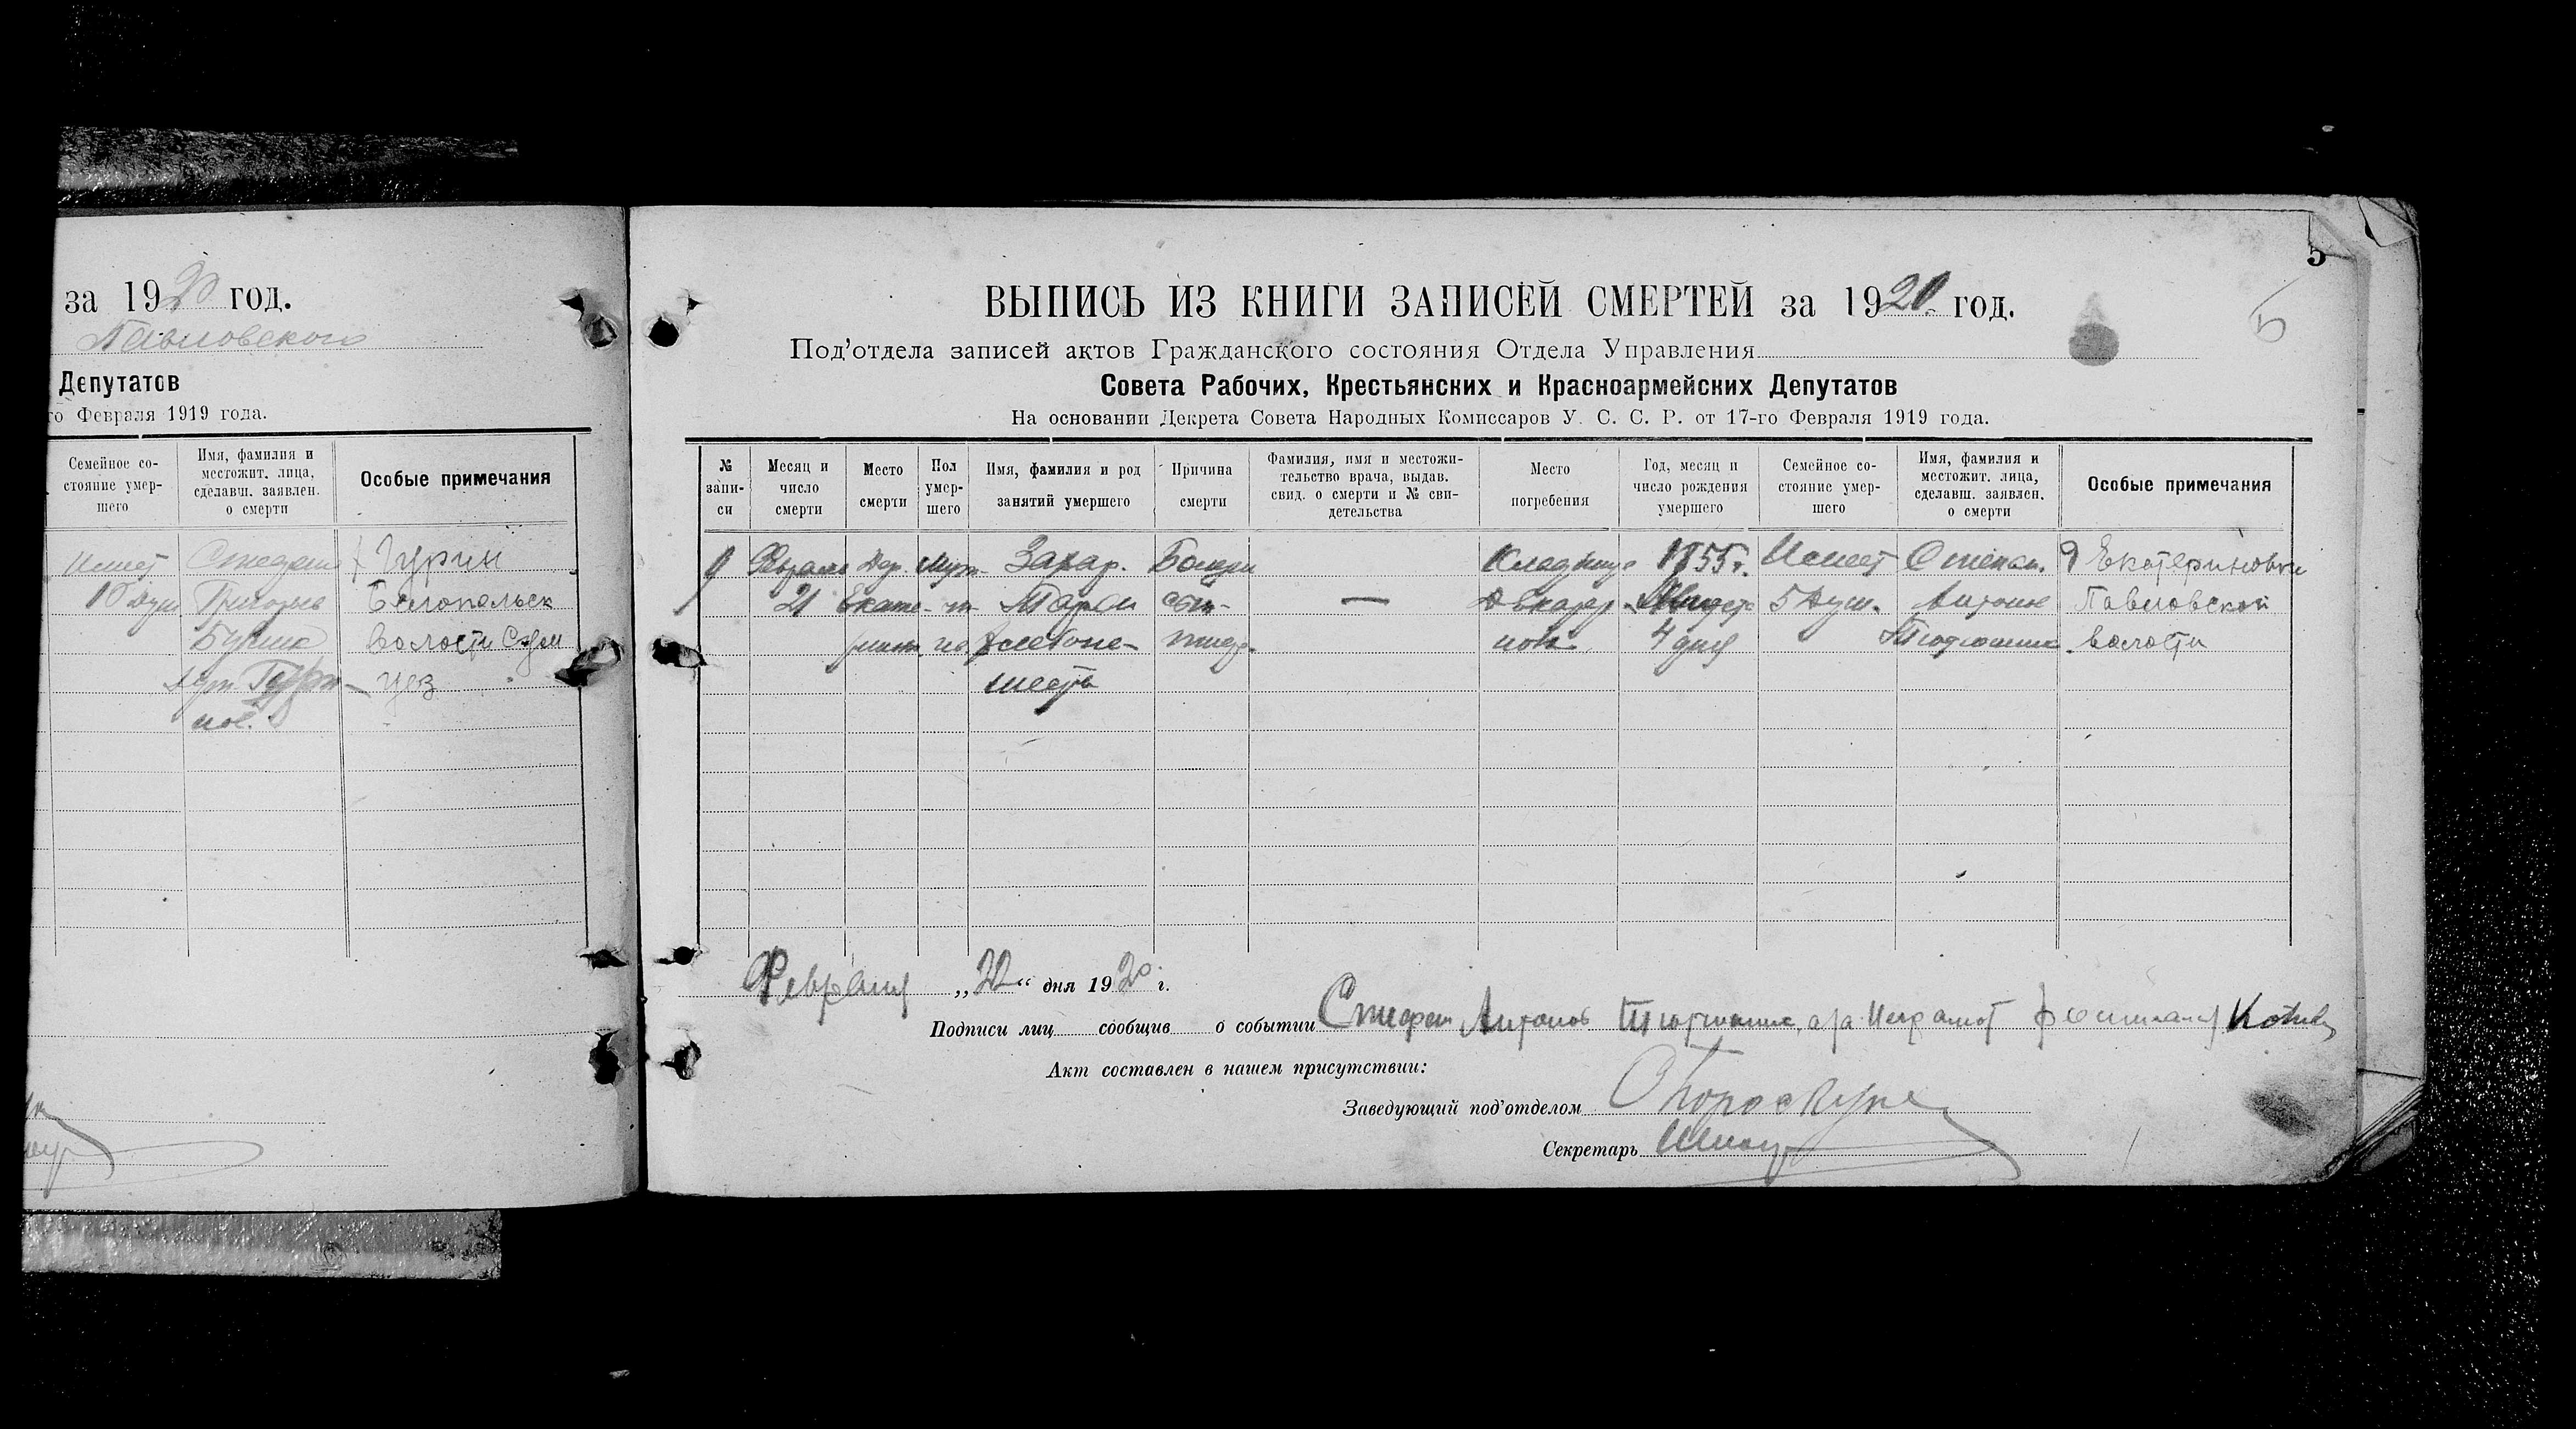 за 1920 год.
Павловского
Депутатов
го Февраля 1919 года.
Семейное со-
стояние умер-
шего
Имя, фамилия и
местожит. лица,
сделавш. заявлен.
о смерти
Особые примечания
Имеет
10 душ
Стефан
Григорьев
х Гурин
Белопольск
Волости Сум
уез
5
ВЫПИСЬ ИЗ КНИГИ ЗАПИСЕЙ СМЕРТЕЙ за 1920 год.
5
Под’отдела записей актов Гражданского состояния Отдела Управления
Совета Рабочих, Крестьянских и Красноармейских Депутатов
На основании Декрета Совета Народных Комиссаров У. С. С. Р. от 17-го Февраля 1919 года.
№
запи-
си
Месяц и
число
смерти
Место
смерти
Пол
умер-
шего
Имя, фамилия и род
занятий умершего
Причина
смерти
Фамилия, имя и местожи-
тельство врача, выдав.
свид. о смерти и № сви-
детельства
Место
погребения
Год, месяц и
число рождения
умершего
Семейное со-
стояние умер-
шего
Имя, фамилия и
местожит. лица,
сделавш. заявлен.
о смерти
Особые примечания
9
Февраля
21
Дер.
Екате-
рин
Муж-
Захар.
Болезн
сып-
—
Кладбище
Д Екатер
нов
1855 г.
4 дня
Имеет
5 Душ.
Степан.
Антонов
д Екатериновки
Павловской
волости
Февраля „22“ дня 1920 г.
Подписи лиц сообщив о событии Стефан Антонов
Акт составлен в нашем присутствии:
Заведующий под’отделом
Секретарь